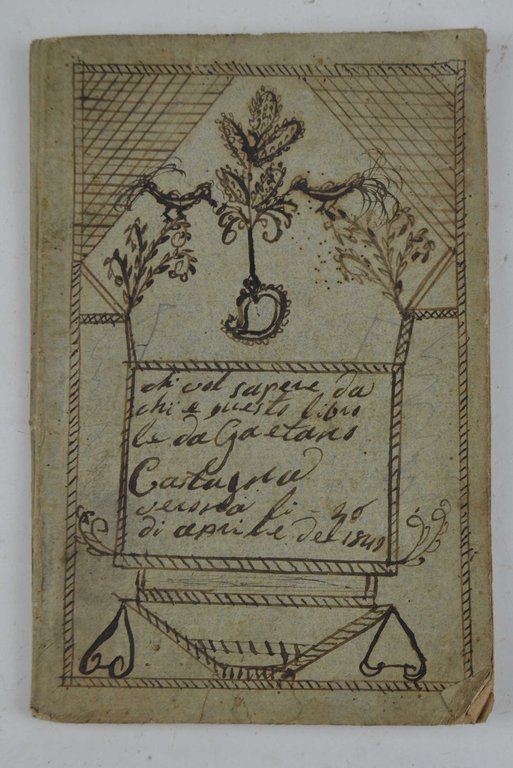 chi vol sapere da
chi e questo libro
le da Gaetano
Castagna
verona li 20
di aprile del 1849